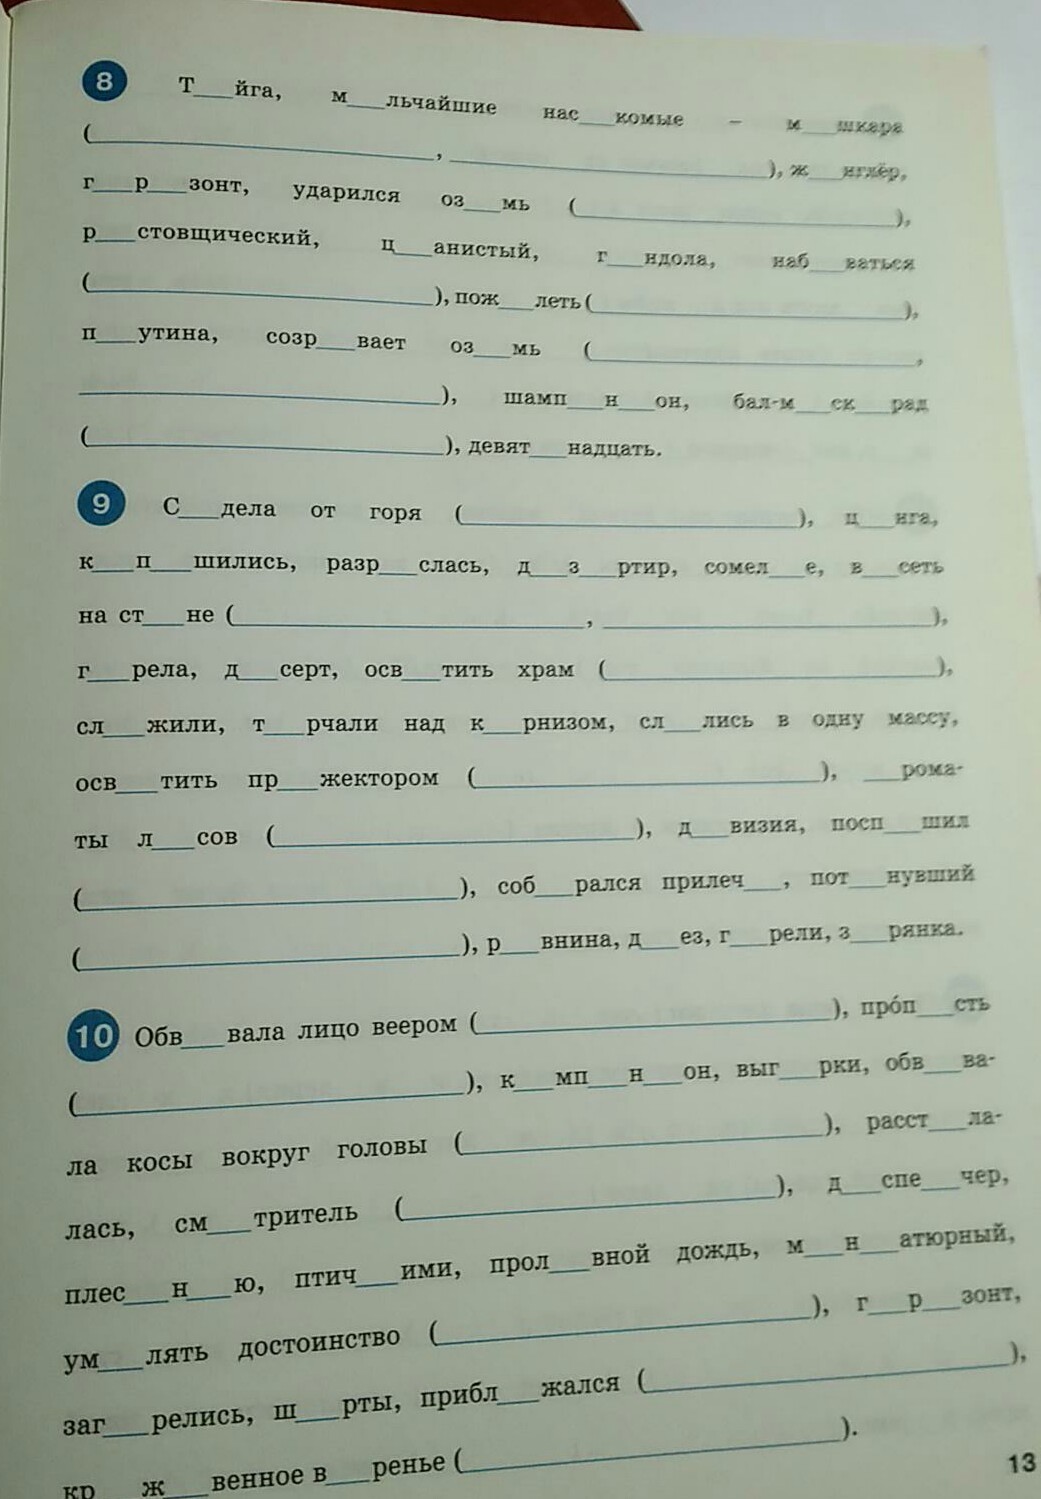 8 Т___йга, м___льчайшие нас___комые – м___шкара
(______________, ______________), ж___нглёр,
г___р___зонт, ударился оз___мь (______________),
р___стовщический, ц___анистый, г___ндола, наб___ваться
(______________), пож___леть (______________),
п___утина, созр___вает оз___мь (______________,
______________), шамп___н___он, бал-м___ск___рад
(______________), девят___надцать.
9 С___дела от горя (______________), ц___нга,
к___п___шились, разр___слась, д___з___ртир, сомел___е, в___сеть
на ст___не (______________, ______________),
г___рела, д___серт, осв___тить храм (______________),
сл___жили, т___рчали над к___рнизом, сл___лись в одну массу,
осв___тить пр___жектором (______________), ___рома-
ты л___сов (______________), д___визия, посп___шил
(______________), соб___рался прилеч___, пот___нувший
(______________), р___внина, д___ез, г___рели, з___рянка.
10 Обв___вала лицо веером (______________), про́п___сть
(______________), к___мп___н___он, выг___рки, обв___ва-
ла косы вокруг головы (______________), расст___ла-
лась, см___тритель (______________), д___спе___чер,
плес___н___ю, птич___ими, прол___вной дождь, м___н___атюрный,
ум___лять достоинство (______________), г___р___зонт,
заг___релись, ш___рты, прибл___жался (______________),
кр___ж___венное в___ренье (______________).
13